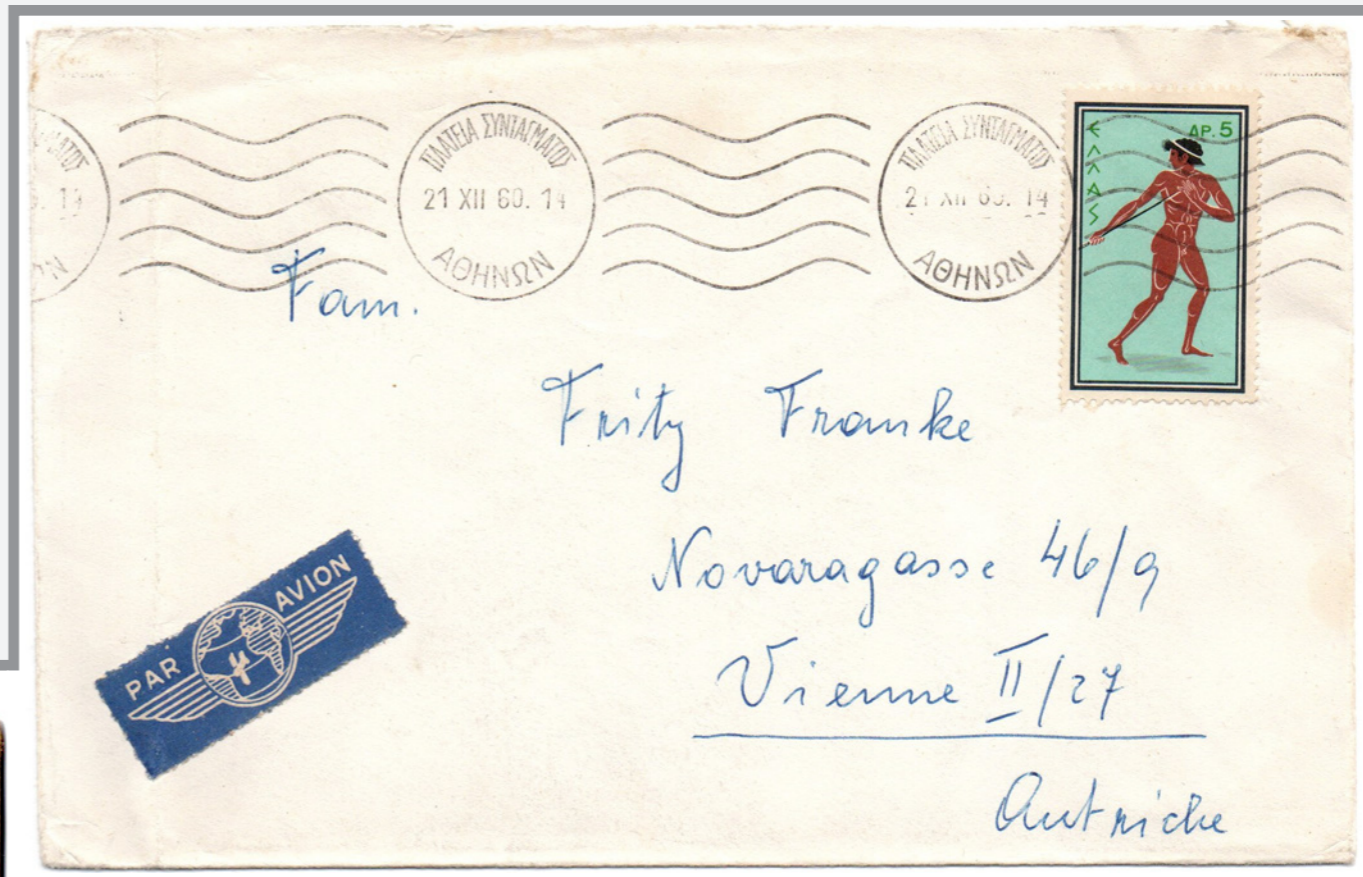 ΜΑΤΟΣ
ΩΝ
ΠΛΑΤΕΙΑ ΣΥΝΤΑΓΜΑΤΟΣ
21 XII 60. 14
ΑΘΗΝΩΝ
ΠΛΑΤΕΙΑ ΣΥΝΤΑΓΜΑΤΟΣ
21 XII 60. 14
ΑΘΗΝΩΝ
ΕΛΛΑΣ
ΔΡ. 5
Fam.
Fritz Franke
Novaragasse 46/9
Vienne II/27
Autriche
PAR AVION